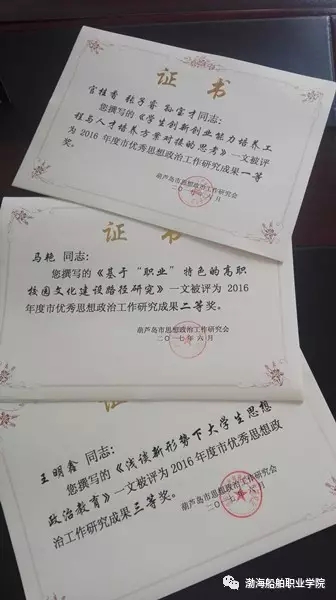 证 书
官桂香 张子睿 孙宝才同志:
您撰写的《学生创新创业能力培养工
程与人才培养方案对接的思考》一文被评
为2016年度市优秀思想政治工作研究成果一等
奖。
葫芦岛市思想政治工作研究会
二〇一七年六月
证 书
马艳 同志:
您撰写的《基于“职业”特色的高职
校园文化建设路径研究》一文被评为 2016
年度市优秀思想政治工作研究成果二等奖。
葫芦岛市思想政治工作研究会
二〇一七年六月
证书
王明鑫 同志:
您撰写的《浅谈新形势下大学生思想
政治教育》一文被评为2016年度市优秀思想政
治工作研究成果三等奖。
葫芦岛市思想政治工作研究会
二〇一七年六月
渤海船舶职业学院